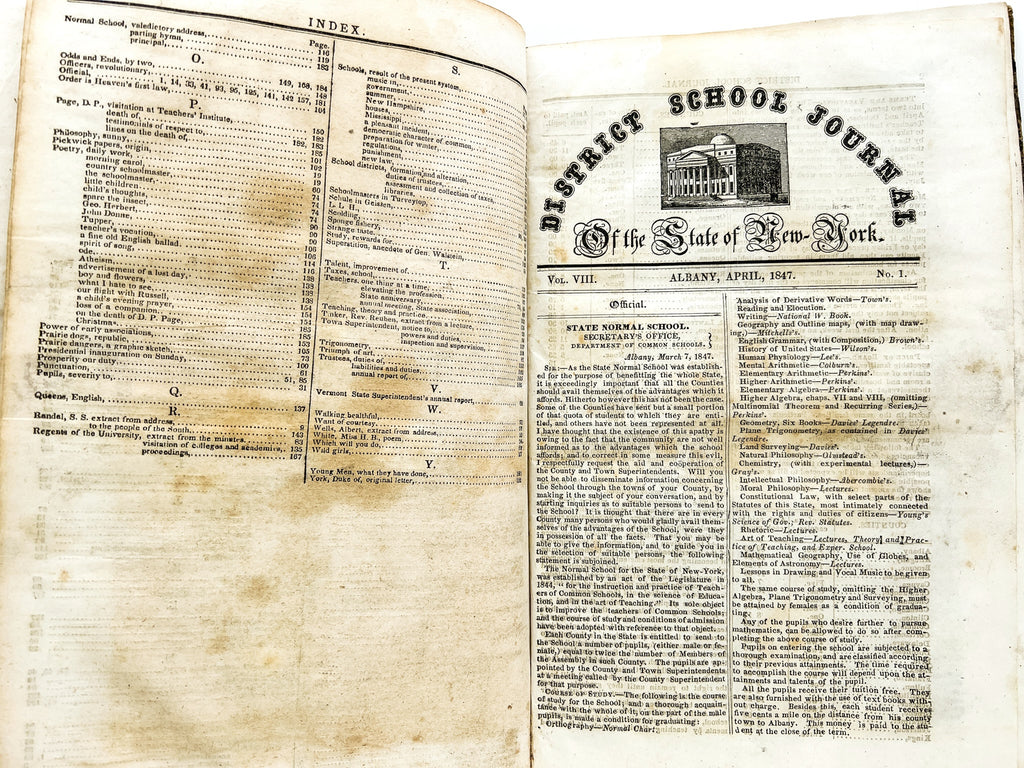 INDEX.
Page.
Normal School, valedictory address, 116
parting hymn, 119
principal, 183
O.
Odds and Ends, by two, 149, 168, 184
Officers, revolutionary,
Official, 1, 14, 33, 41, 93, 95, 125, 141, 142, 157, 181
Order is Heaven's first law, 104
P.
Page, D. P., visitation at Teachers' Institute, 150
death of, 182
testimonials of respect to, 182, 183
lines on the death of,
Philosophy, sunny,
Pickwick papers, origin,
Poetry, daily work,
morning carol,
country schoolmaster,
the schoolmaster,
little children,
child's thoughts,
spare the insect,
Geo. Herbert,
John Donne,
Tupper,
teacher's vocation,
a fine old English ballad.
spirit of song,
ode,
Atheism,
advertisement of a lost day,
boy and flowers,
what I hate to see,
our flight with Russell,
a child's evening prayer,
loss of a companion,
on the death of D. P. Page,
Christmas,
Power of early associations,
Prairie dogs, republic,
Prairie dangers, a graphic sketch,
Presidential inauguration on Sunday,
Prosperity our duty,
Punctuation,
Pupils, severity to,
Q.
Queens, English, 137
R.
Randal, S. S. extract from address,
to the people of the South, 9
Regents of the University, extract from the minutes, 143
visitation of colleges and academies, 135
proceedings, 167
S.
Schools, result of the present system,
music in,
government,
summer,
New Hampshire,
houses,
Mississippi,
a pleasant incident,
democratic character of common,
preparation for winter,
regulations,
punishment,
new law,
School districts, formation and alteration,
duties of trustees,
assessment and collection of taxes,
libraries,
Schoolmasters in Turveytop,
Schule in Geissen,
L. L. H.
Scolding,
Sponge fishery,
Strange taste,
Study, rewards for,
Superstition, anecdote of Gen. Walstein,
T.
Talent, improvement of,
Taxes, school,
Teachers, one thing at a time,
elevating the profession,
State anniversary,
annual meeting, State association,
Teaching, theory and practice,
Tinker, Rev. Reuben, extract from a lecture,
Town Superintendent, notice to,
powers and duties,
inspection and supervision,
Trigonometry,
Triumph of art,
Trustees, duties of,
liabilities and duties,
annual report of,
V.
Vermont State Superintendent's annual report,
W.
Walking healthful,
Want of courtesy,
Wells, Albert, extract from address,
White, Miss H. B., poem,
Which will you do,
Wild girls,
Y.
Young Men, what they have done,
York, Duke of, original letter,
DISTRICT SCHOOL JOURNAL
Of the State of New-York.
VOL. VIII. ALBANY, APRIL, 1847. No. 1.
Official.
STATE NORMAL SCHOOL.
SECRETARY'S OFFICE,
DEPARTMENT OF COMMON SCHOOLS,
Albany, March 7, 1847.
SIR:—As the State Normal School was establish-
ed for the purpose of benefitting the whole State,
it is exceedingly important that all the Counties
should avail themselves of the advantages which it
affords. Hitherto however this has not been the case.
Some of the Counties have sent but a small portion
of that quota of students to which they are enti-
tled, and others have not been represented at all.
I have thought that the existence of this apathy is
owing to the fact that the community are not well
informed as to the advantages which the school
affords; and to correct in some measure this evil,
I respectfully request the aid and coöperation of
the County and Town Superintendents. Will you
not be able to disseminate information concerning
the School through the towns of your County, by
making it the subject of your conversation, and by
starting inquiries as to suitable persons to send to
the School? It is thought that there are in every
County many persons who would gladly avail them-
selves of the advantages of the School, were they
in possession of all the facts. That you may be
able to give the information, and to guide you in
the selection of suitable persons, the following
statement is subjoined.
The Normal School for the State of New-York,
was established by an act of the Legislature in
1844, "for the instruction and practice of Teach-
ers of Common Schools, in the science of Educa-
tion, and in the art of Teaching." Its sole object
is to improve the teachers of Common Schools;
and the course of study and conditions of admission
have been adopted with reference to that object.
Each County in the State is entitled to send to
the School a number of pupils, (either male or fe-
male,) equal to twice the number of Members of
the Assembly in such County. The pupils are ap-
pointed by the County and Town Superintendents
at a meeting called by the County Superintendent
for that purpose.
COURSE OF STUDY.—The following is the course
of study for the School; and a thorough acquain-
tance with the whole of it, on the part of the male
pupils, is made a condition for graduating:
Orthography—Normal Chart.
Analysis of Derivative Words—Town's.
Reading and Elocution.
Writing—National W. Book.
Geography and Outline maps, (with map draw-
ing,)—Mitchell's.
English Grammar, (with Composition,) Brown's.
History of United States—Wilson's.
Human Physiology—Lee's.
Mental Arithmetic—Colburn's.
Elementary Arithmetic—Perkins'.
Higher Arithmetic—Perkins'.
Elementary Algebra—Perkins'.
Higher Algebra, chaps. VII and VIII, (omitting
Multinomial Theorem and Recurring Series,)—
Perkins'.
Geometry, Six Books—Davies' Legendre.
Plane Trigonometry, as contained in Davies'
Legendre.
Land Surveying—Davies'.
Natural Philosophy—Olmstead's.
Chemistry, (with experimental lectures,)—
Gray's.
Intellectual Philosophy—Abercombie's.
Moral Philosophy—Lectures.
Constitutional Law, with select parts of the
Statutes of this State, most intimately connected
with the rights and duties of citizens—Young's
Science of Gov.; Rev. Statutes.
Rhetoric—Lectures.
Art of Teaching—Lectures, Theory and Prac-
tice of Teaching, and Exper. School.
Mathematical Geography, Use of Globes, and
Elements of Astronomy—Lectures.
Lessons in Drawing and Vocal Music to be given
to all.
The same course of study, omitting the Higher
Algebra, Plane Trigonometry and Surveying, must
be attained by females as a condition of gradua-
ting.
Any of the pupils who desire further to pursue
mathematics, can be allowed to do so after com-
pleting the above course of study.
Pupils on entering the school are subjected to a
thorough examination, and are classified according
to their previous attainments. The time required
to accomplish the course will depend upon the at-
tainments and talents of the pupil.
All the pupils receive their tuition free. They
are also furnished with the use of text books with-
out charge. Besides this, each student receives
five cents a mile on the distance from his county
town to Albany. This money is paid to the stu-
dent at the close of the term.